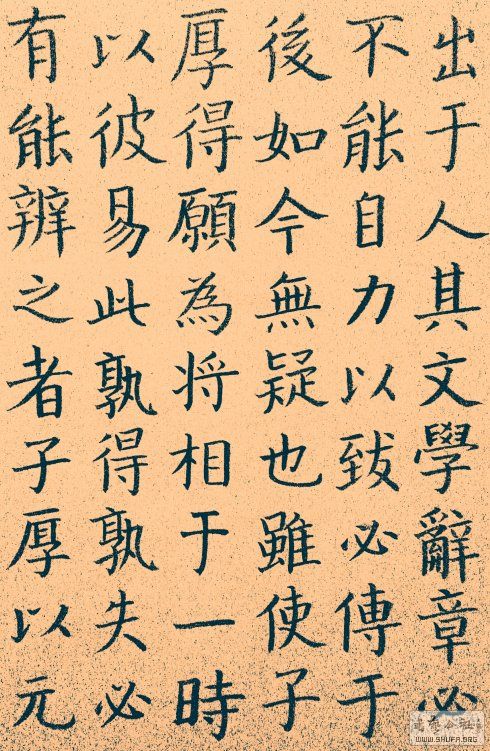 出于人其文學辭章必
不能自力以致必傳于
後如今無疑也雖使子
厚得願為將相于一時
以彼易此孰得孰失必
有能辨之者子厚以元
WWW.SHUFA.ORG